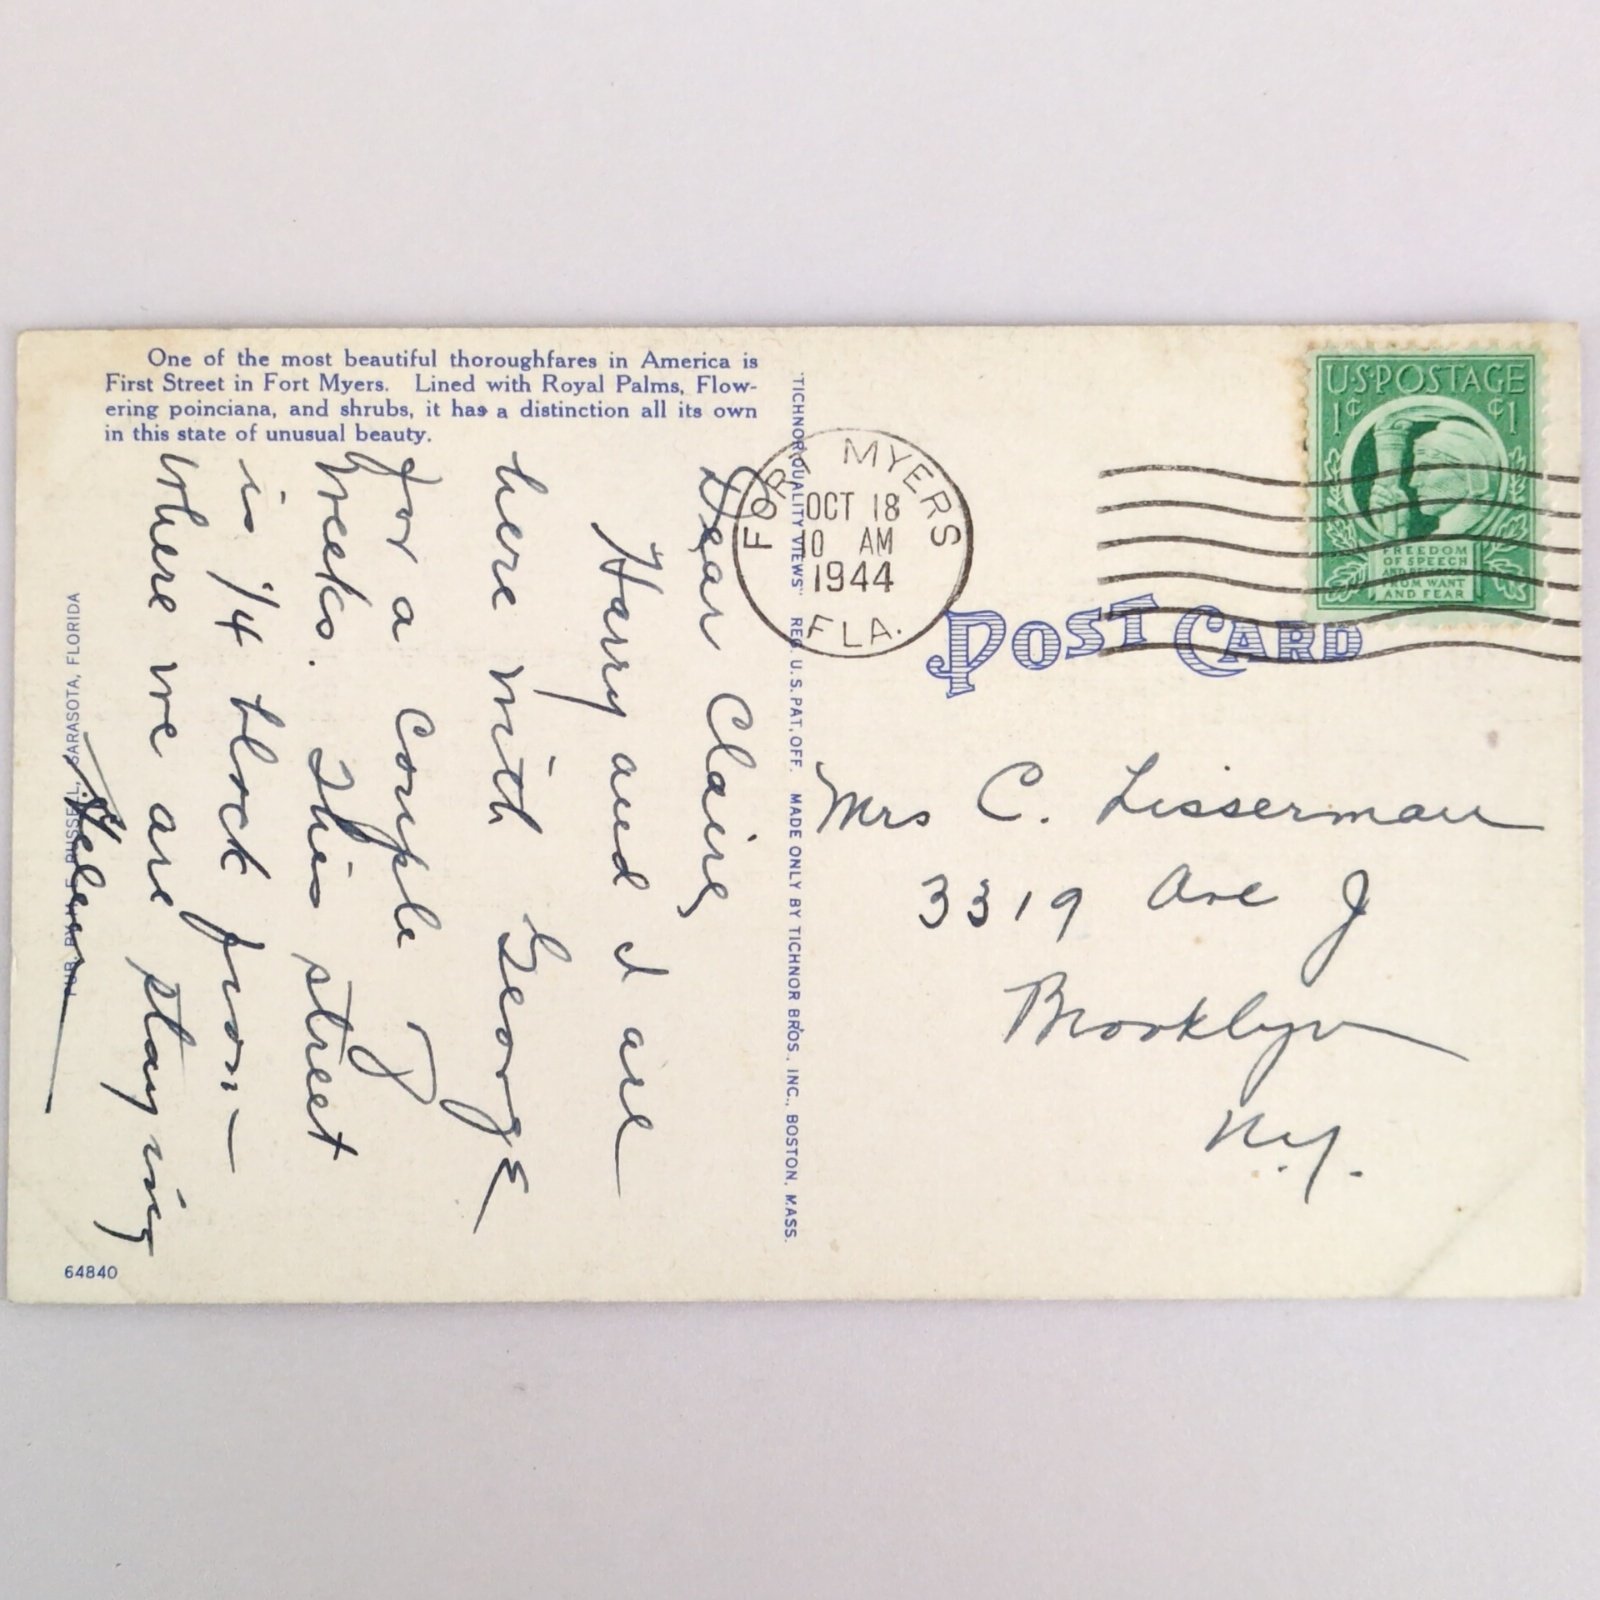 One of the most beautiful thoroughfares in America is
First Street in Fort Myers. Lined with Royal Palms, Flow-
ering poinciana, and shrubs, it has a distinction all its own
in this state of unusual beauty.
Dear Claire,
Harry and I are
here with George
for a couple of
weeks. This street
is 1/4 block from
where we are staying
Helen
PUB. BY M. E. RUSSELL, SARASOTA, FLORIDA
64840
"TICHNOR QUALITY VIEWS" REG. U. S. PAT. OFF. MADE ONLY BY TICHNOR BROS., INC., BOSTON, MASS.
FORT MYERS
OCT 18
10 AM
1944
FLA.
U·S·POSTAGE
1¢ ¢1
FREEDOM
OF SPEECH
AND RELIGION
FROM WANT
AND FEAR
POST CARD
Mrs C. Lisserman
3319 Ave J
Brooklyn
N.Y.